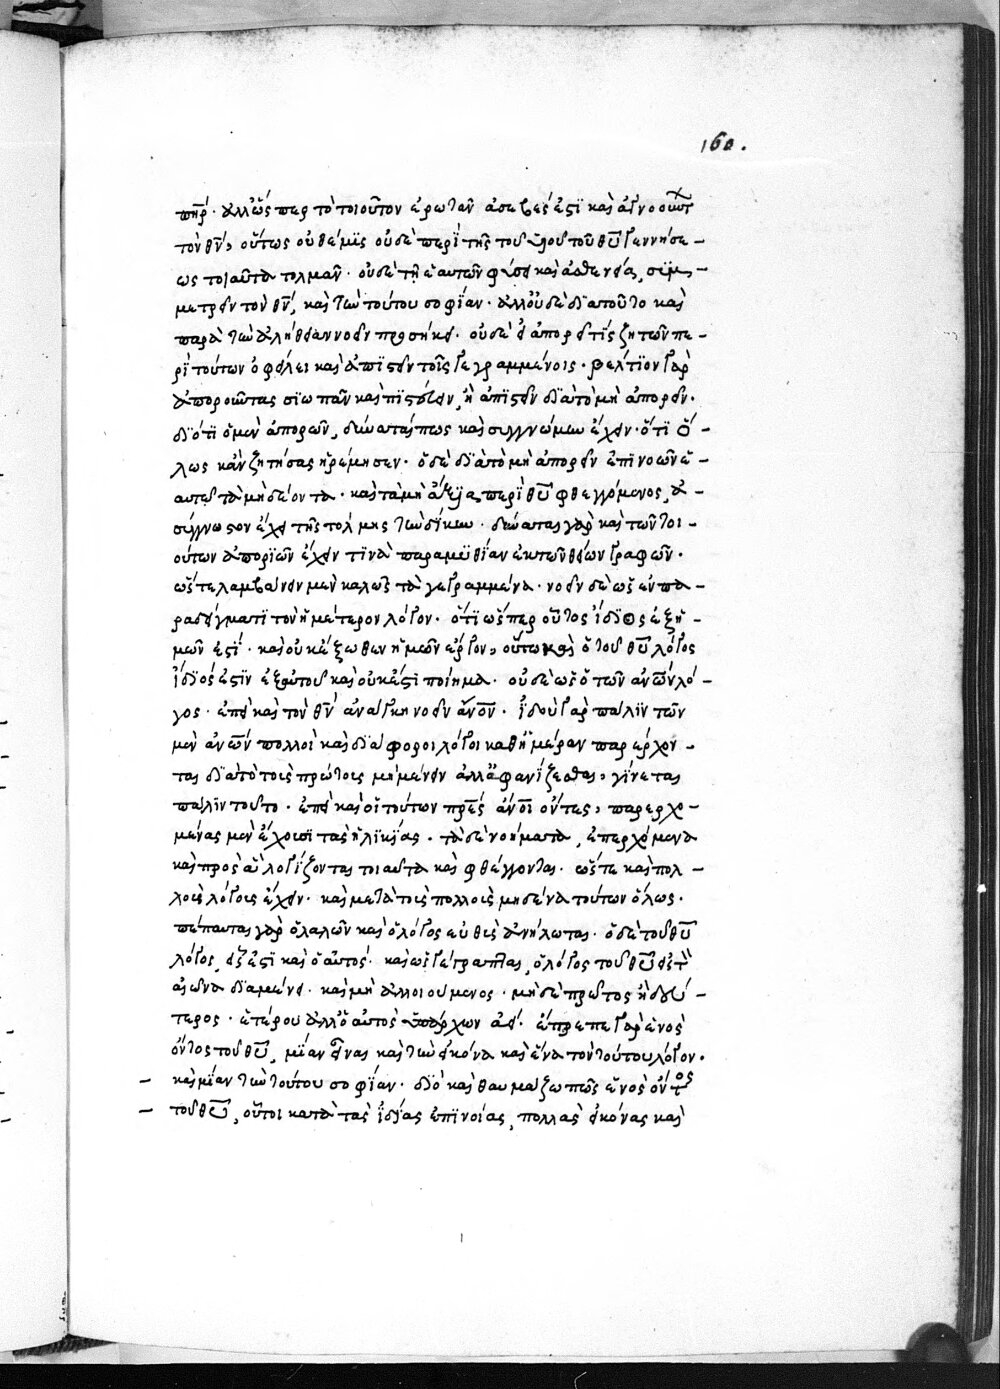 160.
πηρ̅· ἀλλ' ὥσπερ τὸ τοιοῦτον ἐρωτᾶν ἀσεβές ἐστι καὶ ἀγνοούντ
τὸν θν̅, οὕτως οὐ θέμις οὐδὲ περὶ τῆς τοῦ λόγου τοῦ θυ̅ γεννήσε-
ως τοιαῦτα τολμᾶν· οὐδὲ τῇ ἑαυτῶν φύσει καὶ ἀσθενεία, συμ-
μετρεῖν τὸν θν̅, καὶ τὴν τούτου σοφίαν· ἀλλ' οὐδὲ διὰ τοῦτο καὶ
παρὰ τὴν ἀλήθειαν νοεῖν προσήκει· οὐδὲ εἰ ἀπορεῖ τίς ζητῶν πε-
ρὶ τούτων ὀφείλει καὶ ἀπιστεῖν τοῖς γεγραμμένοις· βέλτιον γὰρ
ἀποροῦντας σιωπᾶν καὶ πιστεύειν, ἢ ἀπιστεῖν διὰ τὸ μὴ ἀπορεῖν·
διότι ὁ μὲν ἀπορῶν, δύναταί πως καὶ συγγνώμην ἔχειν· ὅτι ὅ-
λως κἂν ζητήσας ἠρέμησεν· ὁ δὲ διὰ τὸ μὴ ἀπορεῖν ἐπινοῶν ἑ-
αυτῷ τὰ μὴ δέοντα· καὶ τὰ μὴ ἄξια περὶ θυ̅ φθεγγόμενος, ἀ-
σύγγνωστον ἔχει τῆς τόλμης τὴν δίκην· δύναται γὰρ καὶ τῶν τοι-
ούτων ἀποριῶν ἔχειν τινὰ παραμυθίαν ἐκ τῶν θείων γραφῶν·
ὥστε λαμβάνειν μὲν καλῶς τὰ γεγραμμένα· νοεῖν δὲ ὡς ἐν πα-
ραδείγματι τὸν ἡμέτερον λόγον· ὅτι ὥσπερ οὗτος ἴδιος ἐξ ἡ-
μῶν ἐστι· καὶ οὐκ ἔξωθεν ἡμῶν ἔργον, οὕτω καὶ ὁ τοῦ θυ̅ λόγος
ἴδιός ἐστιν ἐξ αὐτοῦ καὶ οὐκ ἔστι ποίημα· οὐδὲ ὡς ὁ τῶν ἀνων̅ λό-
γος· ἐπεὶ καὶ τὸν θν̅ ἀνάγκη νοεῖν ἀνον̅· ἰδοὺ γὰρ πάλιν τῶν
μὲν ἀνων̅ πολλοὶ καὶ διάφοροι λόγοι καθ' ἡμέραν παρέρχον-
ται διὰ τὸ τοὺς πρώτους μὴ μένειν ἀλλ' ἀφανίζεσθαι, γίνεται
πάλιν τοῦτο· ἐπεὶ καὶ οἱ τούτων πρ̅ες ἀνοι̅ ὄντες, παρερχο-
μένας μὲν ἔχουσι τὰς ἡλικίας· τὰ δὲ νοήματα, ἐπερχόμενα
καὶ πρὸς ἃ λογίζονται τοιαῦτα καὶ φθέγγονται· ὥστε καὶ πολ-
λοὺς λόγους ἔχειν· καὶ μετὰ τοὺς πολλοὺς μηδένα τούτων ὅλως·
πέπαυται γὰρ ὁ λαλῶν καὶ ὁ λόγος εὐθὺς ἀνήλωται· ὁ δὲ τοῦ θυ̅
λόγος, εἷς ἐστι καὶ ὁ αὐτός· καὶ ὡς γέγραπται, ὁ λόγος τοῦ θυ̅ εἰς τὸν
αἰῶνα διαμένει· καὶ μὴ ἀλλοιούμενος· μηδὲ πρῶτος ἢ δεύ-
τερος· ἑτέρου ἀλλ' ὁ αὐτὸς ὑπάρχων ἀεί· ἔπρεπε γὰρ ἑνὸς
ὄντος τοῦ θυ̅, μίαν εἶναι καὶ τὴν εἰκόνα καὶ ἕνα τὸν τούτου λόγον·
καὶ μίαν τὴν τούτου σοφίαν· διὸ καὶ θαυμάζω πῶς ἑνὸς ὄντος
τοῦ θυ̅, οὗτοι κατὰ τὰς ἰδίας ἐπινοίας, πολλὰς εἰκόνας καὶ